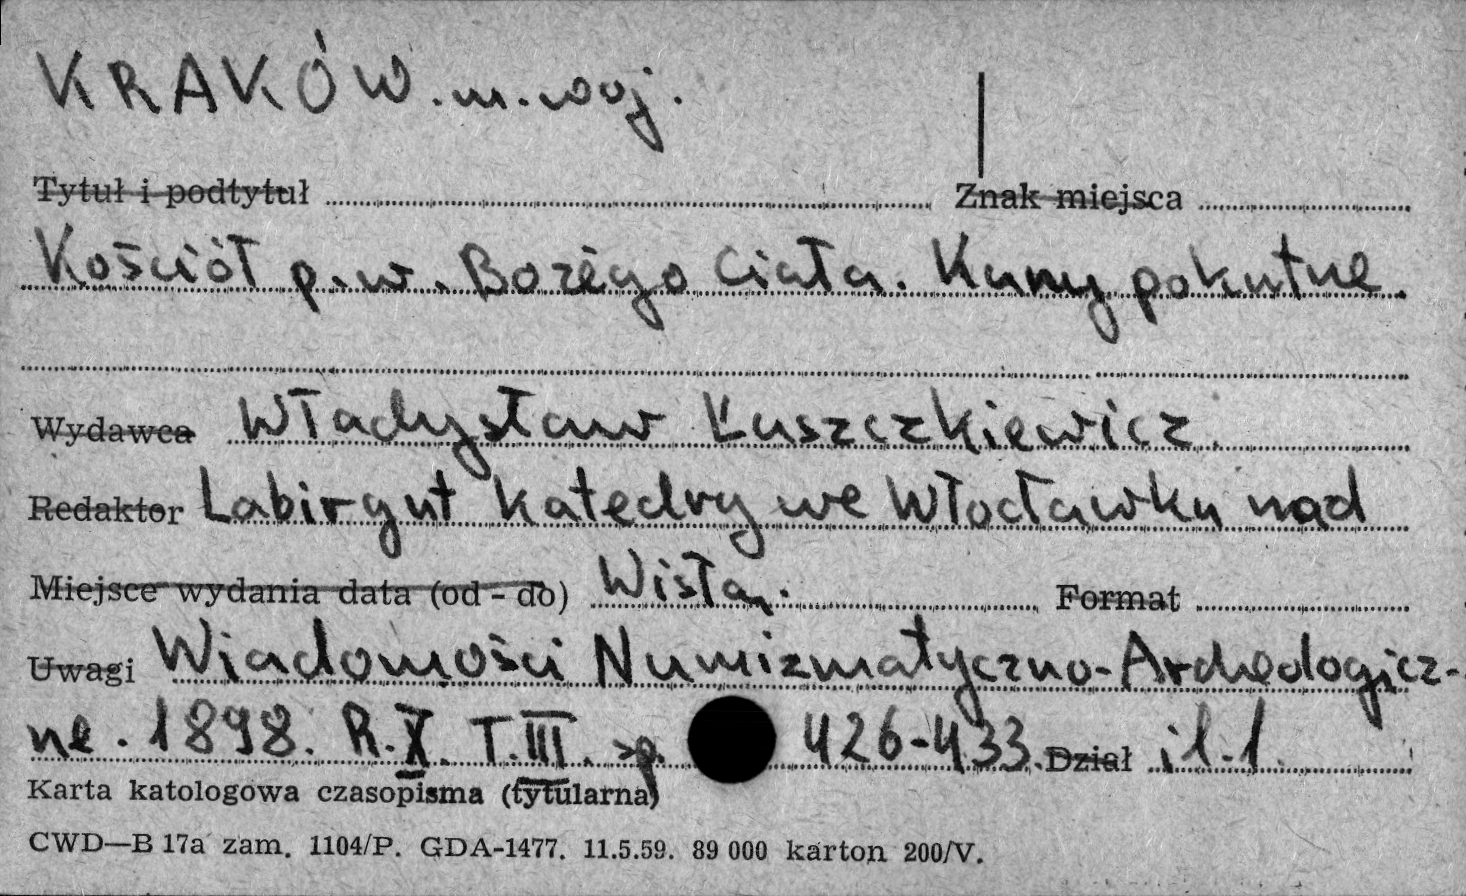 KRAKÓW. m. woj.
Tytuł i podtytuł Znak miejsca
Kościół p.w. Bożego Ciała. Kuny pokutne.
Wydawca Władysław Łuszczkiewicz.
Redaktor Labirynt katedry we Włocławku nad
Miejsce wydania data (od - do) Wisłą. Format
Uwagi Wiadomości Numizmatyczno-Archeologicz-
ne. 1898. R.X. T.III. sp. 426-433. Dział il. 1.
Karta katologowa czasopisma (tytularna)
CWD—B 17a zam. 1104/P. GDA-1477. 11.5.59. 89 000 karton 200/V.